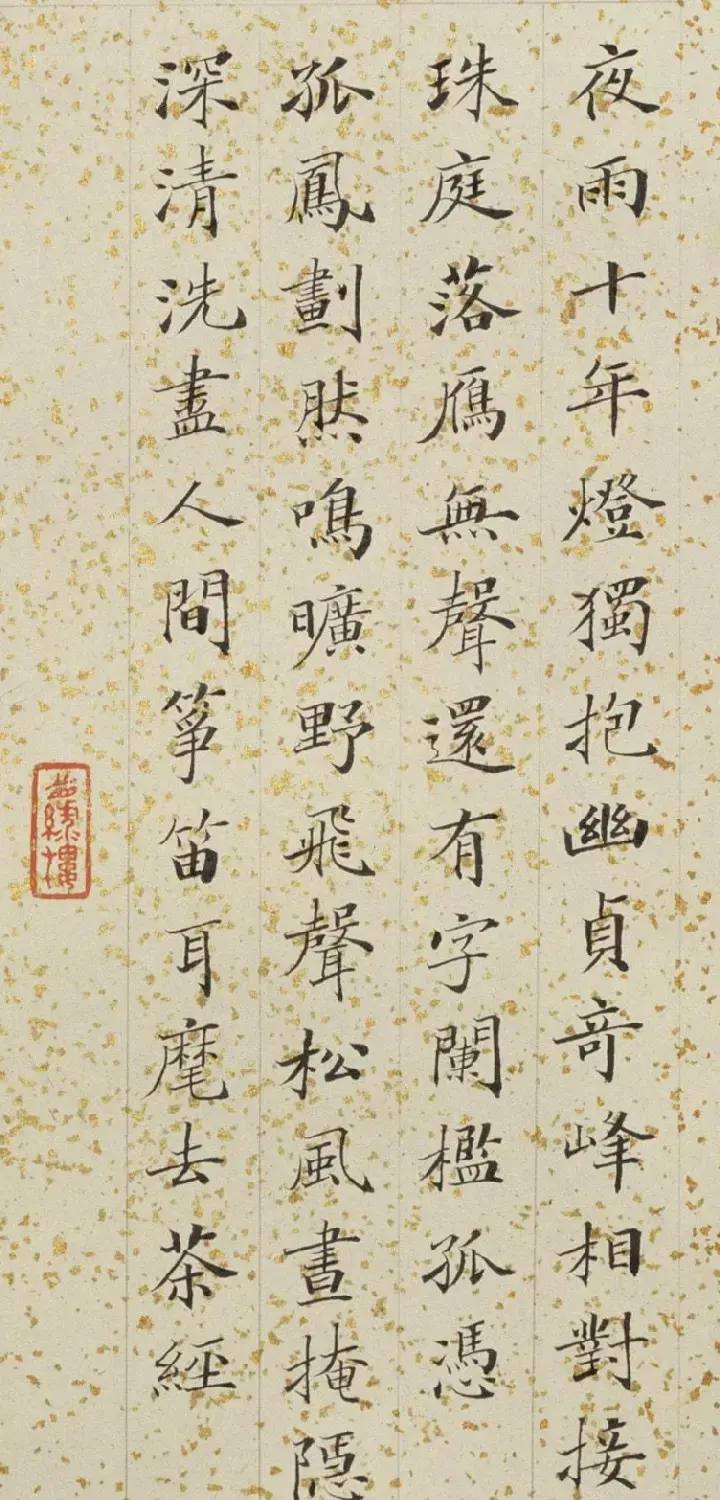 夜雨十年燈獨抱幽貞奇峰相對接
珠庭落鴈無聲還有字闌檻孤憑
孤鳳劃然鳴曠野飛聲松風晝掩隱
深清洗盡人間箏笛耳麾去茶經